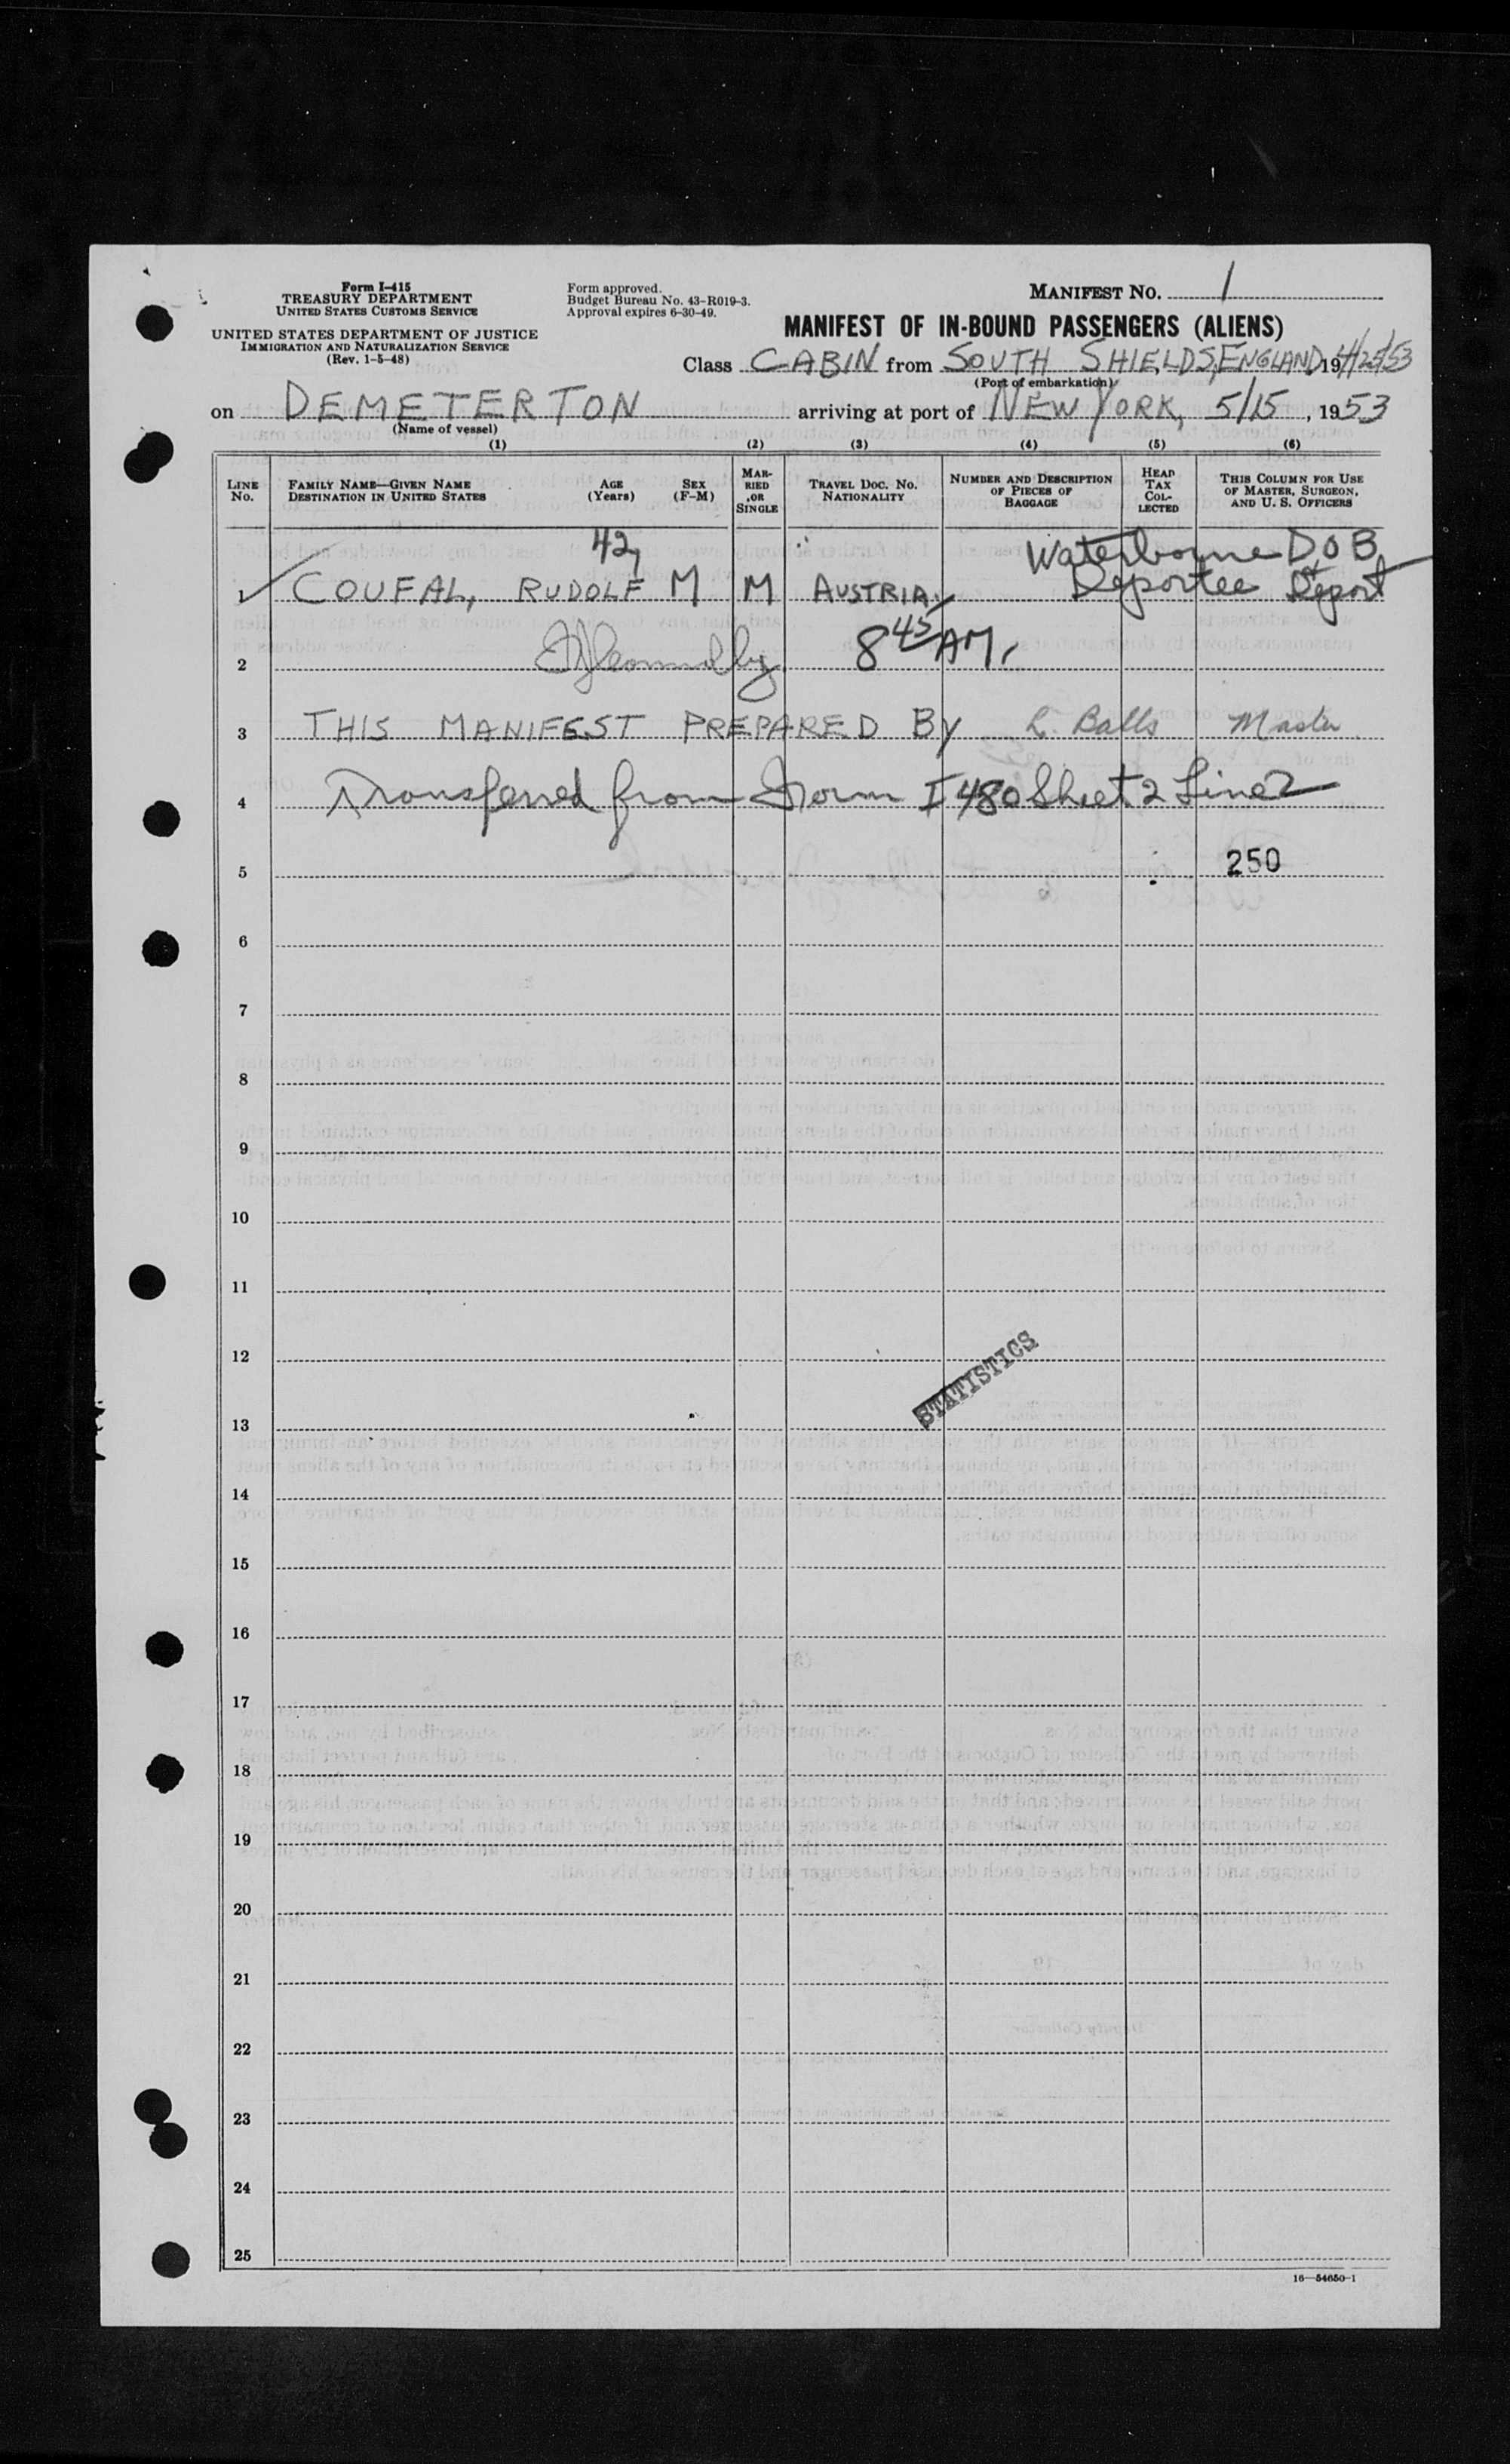 Form I-415
TREASURY DEPARTMENT
UNITED STATES CUSTOMS SERVICE
UNITED STATES DEPARTMENT OF JUSTICE
IMMIGRATION AND NATURALIZATION SERVICE
(Rev. 1-5-48)
Form approved.
Budget Bureau No. 43-R019-3.
Approval expires 6-30-49.
MANIFEST NO. 1
MANIFEST OF IN-BOUND PASSENGERS (ALIENS)
Class CABIN from SOUTH SHIELDS, ENGLAND, 19 4/25/53
(Port of embarkation)
on DEMETERTON arriving at port of NEW YORK, 5/15, 1953
(Name of vessel)
(1) (2) (3) (4) (5) (6)
LINE No. FAMILY NAME—GIVEN NAME DESTINATION IN UNITED STATES AGE (Years) SEX (F-M) MARRIED OR SINGLE TRAVEL DOC. NO. NATIONALITY NUMBER AND DESCRIPTION OF PIECES OF BAGGAGE HEAD TAX COLLECTED THIS COLUMN FOR USE OF MASTER, SURGEON, AND U. S. OFFICERS
42 Waterborne D O B
1 COUFAL, RUDOLF M M AUSTRIA Deportee Deport
2 8 45 AM.
3 THIS MANIFEST PREPARED BY L. Balls Master
4 Transferred from Form I 480 Sheet 2 Line 2
5 250
6
7
8
9
10
11
12
STATISTICS
13
14
15
16
17
18
19
20
21
22
23
24
25
16—54650-1